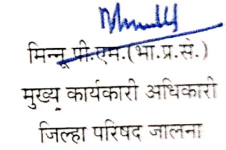 मिन्नू पी.एम.(भा.प्र.से.)
मुख्य कार्यकारी अधिकारी
जिल्हा परिषद जालना